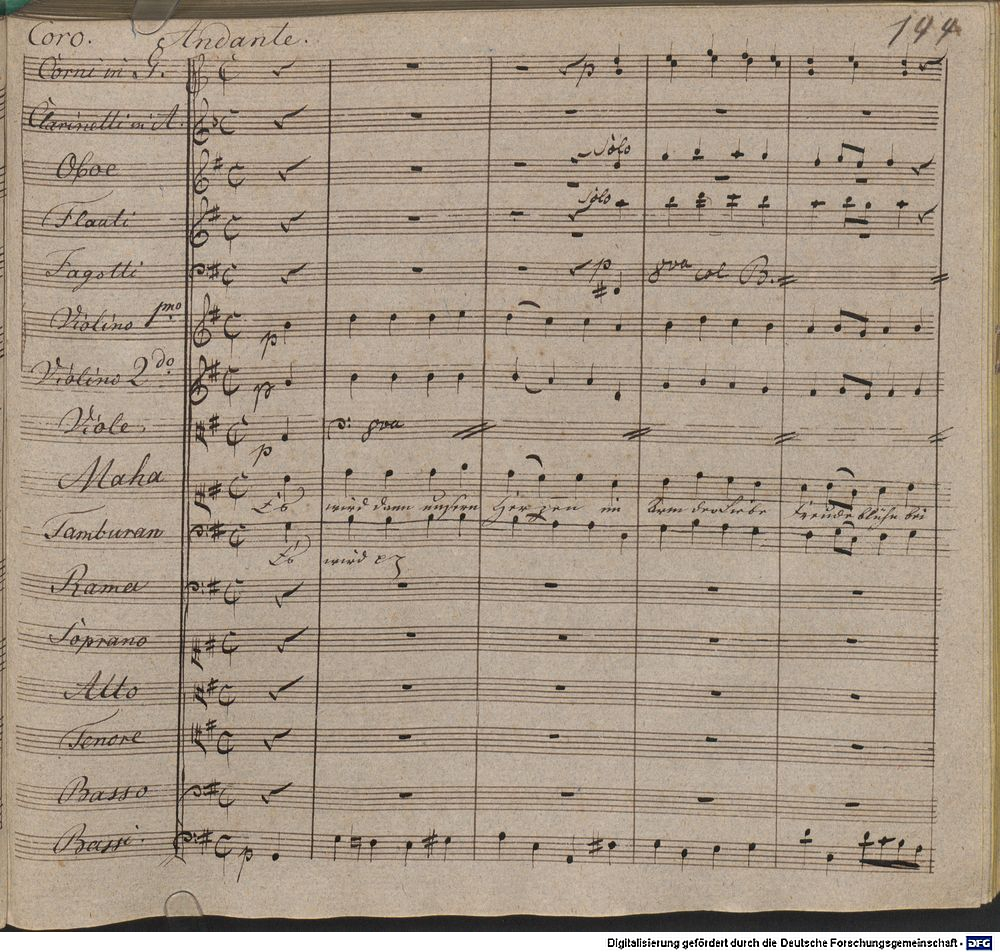 Coro. Andante. 144
Corni in G.
Clarinetti in A.
p
Oboe
Solo
Flauti
Solo
Fagotti
p 8va col B.
Violino pmo
p
Violino 2do
p
Viole
p 8va
Maha
Es wird dann unsern Herzen im Arm der Liebe Freude blühn bei
Tamburan
Es wird
Rama
Soprano
Alto
Tenore
Basso
Bassi.
p
Digitalisierung gefördert durch die Deutsche Forschungsgemeinschaft - DFG